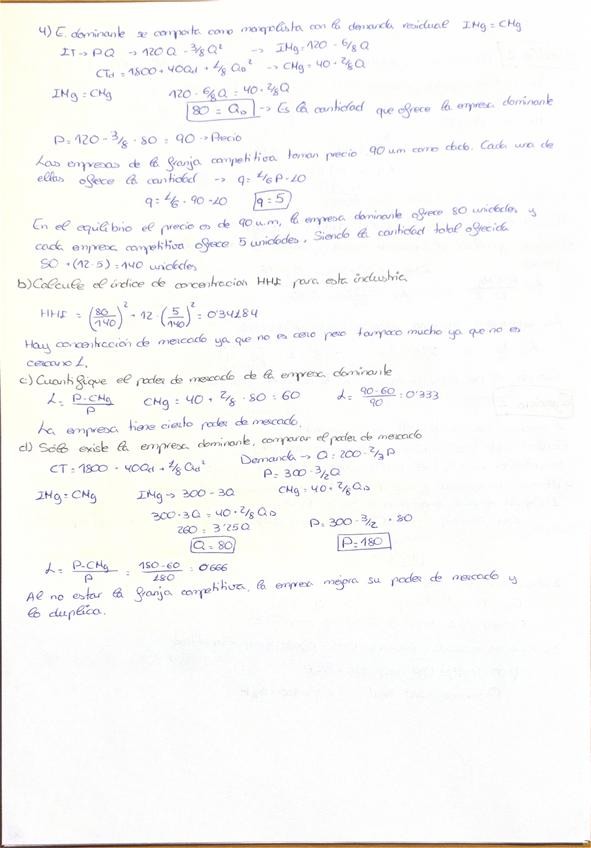 4) E. dominante se comporta como monopolista con la demanda residual IMg = CMg
IT → P.Q → 120Q - 3/8 Q² → IMg = 120 - 6/8 Q
CTd = 1800 + 40Qd + 1/8 QD² → CMg = 40 + 2/8 Q
IMg = CMg 120 - 6/8 Q = 40 + 2/8 Q
80 = QD → Es la cantidad que ofrece la empresa dominante
P = 120 - 3/8 · 80 = 90 → Precio
Las empresas de la franja competitiva toman precio 90 um como dado. Cada una de
ellas ofrece la cantidad → q = 1/6 P - 10
q = 1/6 · 90 - 10 q = 5
En el equilibrio el precio es de 90 u.m, la empresa dominante ofrece 80 unidades y
cada empresa competitiva ofrece 5 unidades. Siendo la cantidad total ofrecida
80 + (12·5) = 140 unidades
b) Calcule el índice de concentracion HHI para esta industria
HHI = (80/140)² + 12 · (5/140)² = 0'34184
Hay concentración de mercado ya que no es cero pero tampoco mucho ya que no es
cercano 1.
c) Cuantifique el poder de mercado de la empresa dominante
L = P - CMg / P CMg = 40 + 2/8 · 80 = 60 L = 90-60 / 90 = 0'333
La empresa tiene cierto poder de mercado.
d) Sólo existe la empresa dominante, comparar el poder de mercado
CT = 1800 + 40Qd + 1/8 Qd² Demanda → Q = 200 - 2/3 P
P = 300 - 3/2 Q
IMg = CMg IMg → 300 - 3Q CMg = 40 + 2/8 QD
300 - 3Q = 40 + 2/8 QD
260 = 3'25Q P = 300 - 3/2 · 80
Q = 80 P = 180
L = P - CMg / P = 180-60 / 180 = 0'666
Al no estar la franja competitiva, la empresa mejora su poder de mercado y
lo duplica.